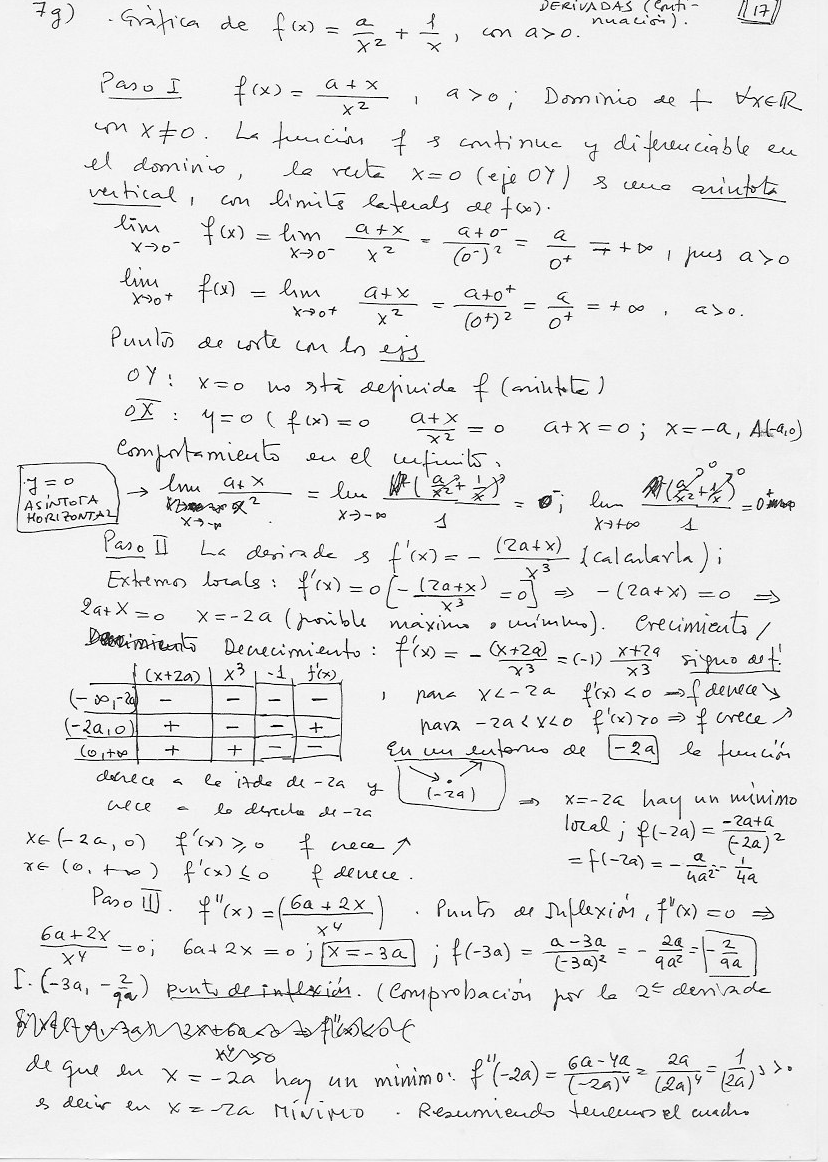 7g) . Gráfica de f(x) = a/x² + 1/x, con a>0.
DERIVADAS (Conti-
nuación).
17
Paso I f(x) = (a+x)/x², a>0; Dominio de f ∀x∈ℝ
con x≠0. La función f s continua y diferenciable en
el dominio, la recta x=0 (eje OY) s una asíntota
vertical, con límits laterals de f(x).
lim x→0⁻ f(x) = lim x→0⁻ (a+x)/x² = (a+0⁻)/(0⁻)² = a/0⁺ = +∞, pues a>0
lim x→0⁺ f(x) = lim x→0⁺ (a+x)/x² = (a+0⁺)/(0⁺)² = a/0⁺ = +∞, a>0.
Puntos de corte con los ejs
OY: x=0 no stá definida f (asíntota)
OX: y=0 (f(x)=0 (a+x)/x² = 0 a+x=0; x=-a, A(-a,0)
Comportamiento en el infinito.
y=0
ASÍNTOTA
HORIZONTAL
→ lim x→-∞ (a+x)/x² = lim x→-∞ (a/x² + 1/x)/1 = 0⁻; lim x→+∞ (a/x² + 1/x)/1 = 0⁺
Paso II La derivada s f'(x) = - (2a+x)/x³ (calcularla);
Extremos locals: f'(x)=0 [- (2a+x)/x³ = 0] ⇒ -(2a+x)=0 ⇒
2a+x=0 x=-2a (posible máximo o mínimo). Crecimiento/
Decrecimiento: f'(x) = - (x+2a)/x³ = (-1) (x+2a)/x³ signo de f'.
(x+2a) x³ -1 f'(x)
(-∞,-2a) - - - -
(-2a,0) + - - +
(0,+∞ + + - -
, para x<-2a f'(x)<0 ⇒ f decrece ↘
para -2a<x<0 f'(x)>0 ⇒ f crece ↗
En un entorno de -2a la función
decrece a la izda de -2a y
crece a la derecha de -2a
(-2a)
⇒ x=-2a hay un mínimo
local; f(-2a) = (-2a+a)/(-2a)²
= f(-2a) = - a/4a² = - 1/4a
x∈(-2a,0) f'(x)≥0 f crece ↗
x∈(0,+∞) f'(x)≤0 f decrece.
Paso III. f''(x) = ((6a+2x)/x⁴). Puntos de Inflexión, f''(x)=0 ⇒
(6a+2x)/x⁴ = 0; 6a+2x=0; x=-3a; f(-3a) = (a-3a)/(-3a)² = - 2a/9a² = - 2/9a
I. (-3a, - 2/9a) punto de inflexión. (Comprobación por la 2ª derivada
de que en x=-2a hay un mínimo: f''(-2a) = (6a-4a)/(-2a)⁴ = 2a/(2a)⁴ = 1/(2a)³ >0
s decir en x=-2a MÍNIMO. Resumiendo tenemos el cuadro